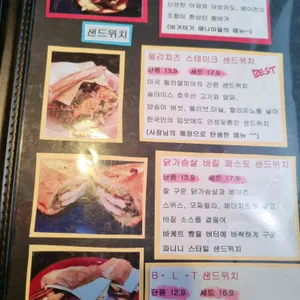 신선한 야채와 아보카도, 베이컨의
조합이 환상인 햄버거
(버거여기 매니아들의 메뉴~)
샌드위치
필리치즈 스테이크 샌드위치
단품 13.9 세트 17.9
BEST
미국 필라델피아의 간판 샌드위치
슬라이스 호주산 고기와 양파,
양송이 버섯, 할라피뇨를 넣어
한국인의 입맛에도 안성맞춤인 샌드위치
(사장님의 해장으로 탄생한 메뉴 ^^)
닭가슴살 바질 페스토 샌드위치
단품 13.9 세트 17.9
잘 구운 닭가슴살과 베이컨,
스위스, 모짜렐라, 체다치즈를 넣고
바질 소스를 곁들여
바게트 빵을 버터에 바싹하게 구운
파니니 스타일 샌드위치
B·L·T 샌드위치
단품 12.9 세트 16.9